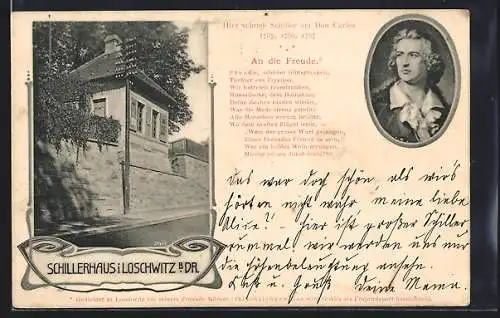 Hier schrieb Schiller am Don Carlos
1785, 1786, 1787
An die Freude.*
Freude, schöner Götterfunken,
Tochter aus Elysium,
Wir betreten feuertrunken,
Himmlische, dein Heiligtum.
Deine Zauber binden wieder,
Was die Mode streng geteilt:
Alle Menschen werden Brüder,
Wo dein sanfter Flügel weilt.
„Wem der grosse Wurf gelungen,
Eines Freundes Freund zu sein,
Wer ein holdes Weib errungen,
Mische seinen Jubel ein!
SCHILLERHAUS i LOSCHWITZ B DR.
Das war doch schön, als wir's
hörten nicht wahr meine liebe
Alice? – hier ist großer Schiller
rummel, wir werden uns nur
die Höhenbeleuchtung ansehn.
u. Gruß Deine Mama.
* Gedichtet in Loschwitz bei seinem Freunde Körner.